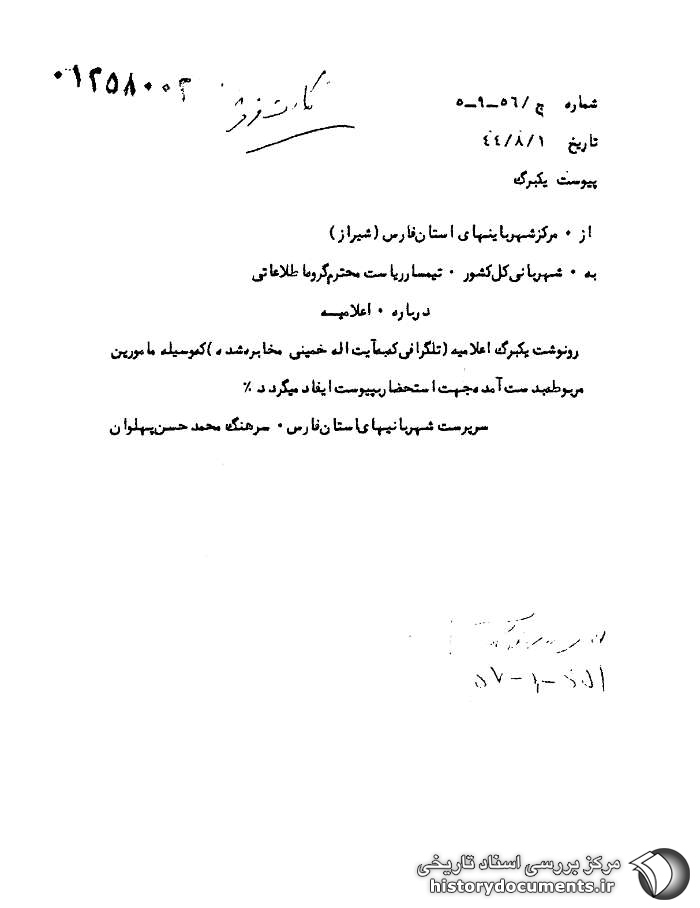 ۰۱۲۵۸۰۰۳
شماره ج /۵۶-۹-۵
تاریخ ۴۴/۸/۱
پیوست یکبرگ
از ۰ مرکز شهربانیهای استان فارس (شیراز)
به ۰ شهربانی کل کشور ۰ تیمسار ریاست محترم گروه اطلاعاتی
درباره ۰ اعلامیه
رونوشت یکبرگ اعلامیه (تلگرافی که به آیت اله خمینی مخابره شده) که بوسیله مامورین
مربوطه بدست آمده جهت استحضار بپیوست ایفاد میگردد ٪
سرپرست شهربانیهای استان فارس ۰ سرهنگ محمد حسن پهلوان
مرکز بررسی اسناد تاریخی
historydocuments.ir